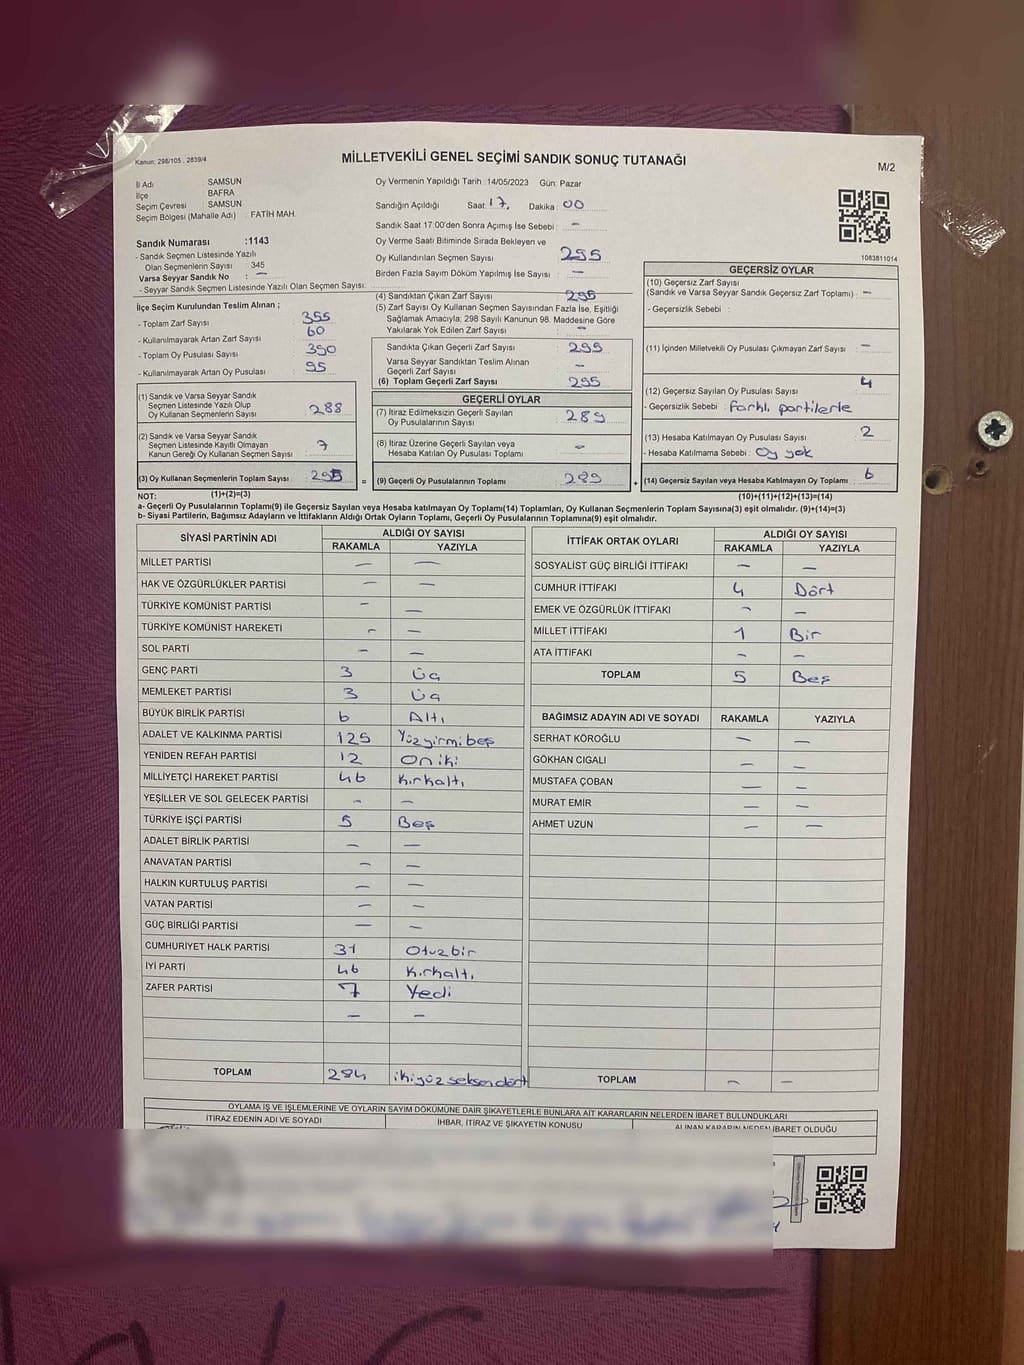 Kanun: 298/105 , 2839/4
MİLLETVEKİLİ GENEL SEÇİMİ SANDIK SONUÇ TUTANAĞI
M/2
İl Adı : SAMSUN
İlçe : BAFRA
Seçim Çevresi : SAMSUN
Seçim Bölgesi (Mahalle Adı) : FATİH MAH.
Sandık Numarası :1143
- Sandık Seçmen Listesinde Yazılı
Olan Seçmenlerin Sayısı : 345
Varsa Seyyar Sandık No : -
- Seyyar Sandık Seçmen Listesinde Yazılı Olan Seçmen Sayısı:
Oy Vermenin Yapıldığı Tarih :14/05/2023 Gün: Pazar
Sandığın Açıldığı Saat: 17, Dakika : 00
Sandık Saat 17:00'den Sonra Açımış İse Sebebi : -
Oy Verme Saati Bitiminde Sırada Bekleyen ve
Oy Kullandırılan Seçmen Sayısı : 295
Birden Fazla Sayım Döküm Yapılmış İse Sayısı : -
1083811014
İlçe Seçim Kurulundan Teslim Alınan ;
- Toplam Zarf Sayısı : 355
- Kullanılmayarak Artan Zarf Sayısı : 60
- Toplam Oy Pusulası Sayısı : 390
- Kullanılmayarak Artan Oy Pusulası : 95
(1) Sandık ve Varsa Seyyar Sandık
Seçmen Listesinde Yazılı Olup
Oy Kullanan Seçmenlerin Sayısı : 288
(2) Sandık ve Varsa Seyyar Sandık
Seçmen Listesinde Kayıtlı Olmayan
Kanun Gereği Oy Kullanan Seçmen Sayısı : 7
(3) Oy Kullanan Seçmenlerin Toplam Sayısı : 295
(4) Sandıktan Çıkan Zarf Sayısı : 295
(5) Zarf Sayısı Oy Kullanan Seçmen Sayısından Fazla İse, Eşitliği
Sağlamak Amacıyla; 298 Sayılı Kanunun 98. Maddesine Göre
Yakılarak Yok Edilen Zarf Sayısı : -
Sandıkta Çıkan Geçerli Zarf Sayısı : 295
Varsa Seyyar Sandıktan Teslim Alınan
Geçerli Zarf Sayısı : -
(6) Toplam Geçerli Zarf Sayısı : 295
GEÇERLİ OYLAR
(7) İtiraz Edilmeksizin Geçerli Sayılan
Oy Pusulalarının Sayısı : 289
(8) İtiraz Üzerine Geçerli Sayılan veya
Hesaba Katılan Oy Pusulası Toplamı : -
= (9) Geçerli Oy Pusulalarının Toplamı : 289
GEÇERSİZ OYLAR
(10) Geçersiz Zarf Sayısı
(Sandık ve Varsa Seyyar Sandık Geçersiz Zarf Toplamı) : -
- Geçersizlik Sebebi :
(11) İçinden Milletvekili Oy Pusulası Çıkmayan Zarf Sayısı : -
(12) Geçersiz Sayılan Oy Pusulası Sayısı : 4
- Geçersizlik Sebebi : farklı partilerle
(13) Hesaba Katılmayan Oy Pusulası Sayısı : 2
- Hesaba Katılmama Sebebi : Oy yok
+ (14) Geçersiz Sayılan veya Hesaba Katılmayan Oy Toplamı : 6
NOT: (1)+(2)=(3) (10)+(11)+(12)+(13)=(14)
a- Geçerli Oy Pusulalarının Toplamı(9) ile Geçersiz Sayılan veya Hesaba katılmayan Oy Toplamı(14) Toplamları, Oy Kullanan Seçmenlerin Toplam Sayısına(3) eşit olmalıdır. (9)+(14)=(3)
b- Siyasi Partilerin, Bağımsız Adayların ve İttifakların Aldığı Ortak Oyların Toplamı, Geçerli Oy Pusulalarının Toplamına(9) eşit olmalıdır.
SİYASİ PARTİNİN ADI ALDIĞI OY SAYISI
RAKAMLA YAZIYLA
MİLLET PARTİSİ - -
HAK VE ÖZGÜRLÜKLER PARTİSİ - -
TÜRKİYE KOMÜNİST PARTİSİ - -
TÜRKİYE KOMÜNİST HAREKETİ - -
SOL PARTİ - -
GENÇ PARTİ 3 Üç
MEMLEKET PARTİSİ 3 Üç
BÜYÜK BİRLİK PARTİSİ 6 Altı
ADALET VE KALKINMA PARTİSİ 125 Yüzyirmibeş
YENİDEN REFAH PARTİSİ 12 Oniki
MİLLİYETÇİ HAREKET PARTİSİ 46 Kırkaltı
YEŞİLLER VE SOL GELECEK PARTİSİ - -
TÜRKİYE İŞÇİ PARTİSİ 5 Beş
ADALET BİRLİK PARTİSİ - -
ANAVATAN PARTİSİ - -
HALKIN KURTULUŞ PARTİSİ - -
VATAN PARTİSİ - -
GÜÇ BİRLİĞİ PARTİSİ - -
CUMHURİYET HALK PARTİSİ 31 Otuzbir
İYİ PARTİ 46 Kırkaltı
ZAFER PARTİSİ 7 Yedi
- -
TOPLAM 284 ikiyüzseksendört
İTTİFAK ORTAK OYLARI ALDIĞI OY SAYISI
RAKAMLA YAZIYLA
SOSYALİST GÜÇ BİRLİĞİ İTTİFAKI - -
CUMHUR İTTİFAKI 4 Dört
EMEK VE ÖZGÜRLÜK İTTİFAKI - -
MİLLET İTTİFAKI 1 Bir
ATA İTTİFAKI - -
TOPLAM 5 Beş
BAĞIMSIZ ADAYIN ADI VE SOYADI RAKAMLA YAZIYLA
SERHAT KÖROĞLU - -
GÖKHAN CIGALI - -
MUSTAFA ÇOBAN - -
MURAT EMİR - -
AHMET UZUN - -
TOPLAM - -
OYLAMA İŞ VE İŞLEMLERİNE VE OYLARIN SAYIM DÖKÜMÜNE DAİR ŞİKAYETLERLE BUNLARA AİT KARARLARIN NELERDEN İBARET BULUNDUKLARI
İTİRAZ EDENİN ADI VE SOYADI İHBAR, İTİRAZ VE ŞİKAYETİN KONUSU ALINAN KARARIN NEDEN İBARET OLDUĞU